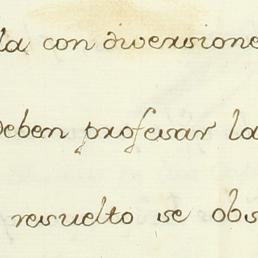 la con diversione
deben profesar la
resuelto se obs